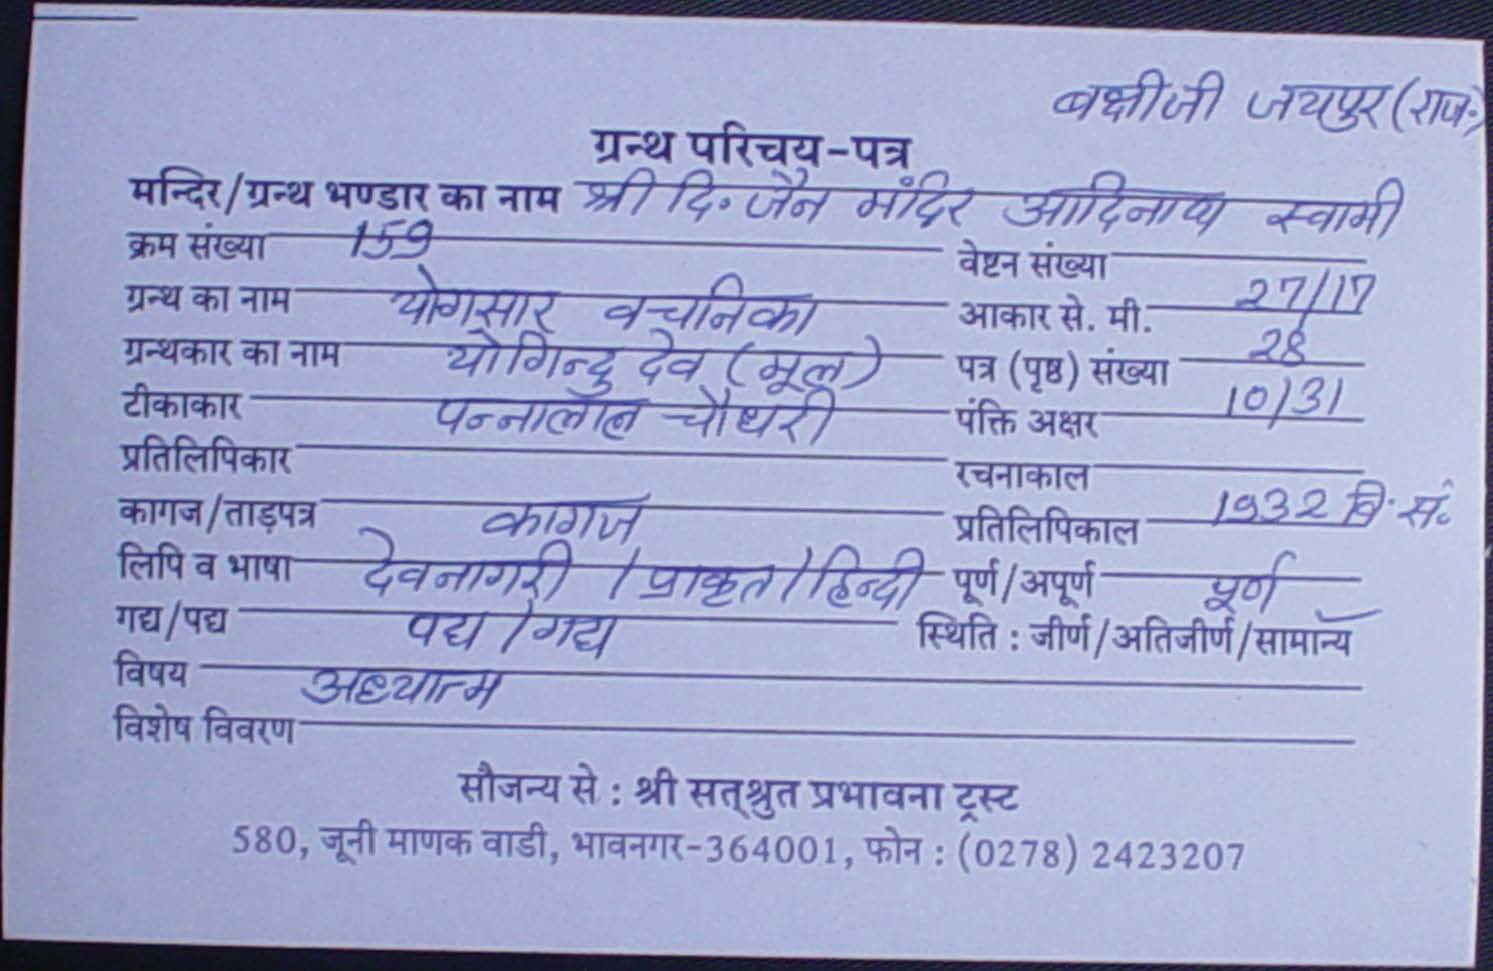 बक्षीजी जयपुर (राज.)
ग्रन्थ परिचय-पत्र
मन्दिर/ग्रन्थ भण्डार का नाम श्री दि. जैन मंदिर आदिनाथ स्वामी
क्रम संख्या 159 वेष्टन संख्या
ग्रन्थ का नाम योगसार वचनिका आकार से. मी. 27/17
ग्रन्थकार का नाम योगिन्दु देव (मूल) पत्र (पृष्ठ) संख्या 28
टीकाकार पन्नालाल चौधरी पंक्ति अक्षर 10/31
प्रतिलिपिकार रचनाकाल
कागज/ताड़पत्र कागज प्रतिलिपिकाल 1932 वि. सं.
लिपि व भाषा देवनागरी / प्राकृत / हिन्दी पूर्ण/अपूर्ण पूर्ण
गद्य/पद्य पद्य / गद्य स्थिति : जीर्ण/अतिजीर्ण/सामान्य
विषय अध्यात्म
विशेष विवरण
सौजन्य से : श्री सत्श्रुत प्रभावना ट्रस्ट
580, जूनी माणक वाडी, भावनगर-364001, फोन : (0278) 2423207